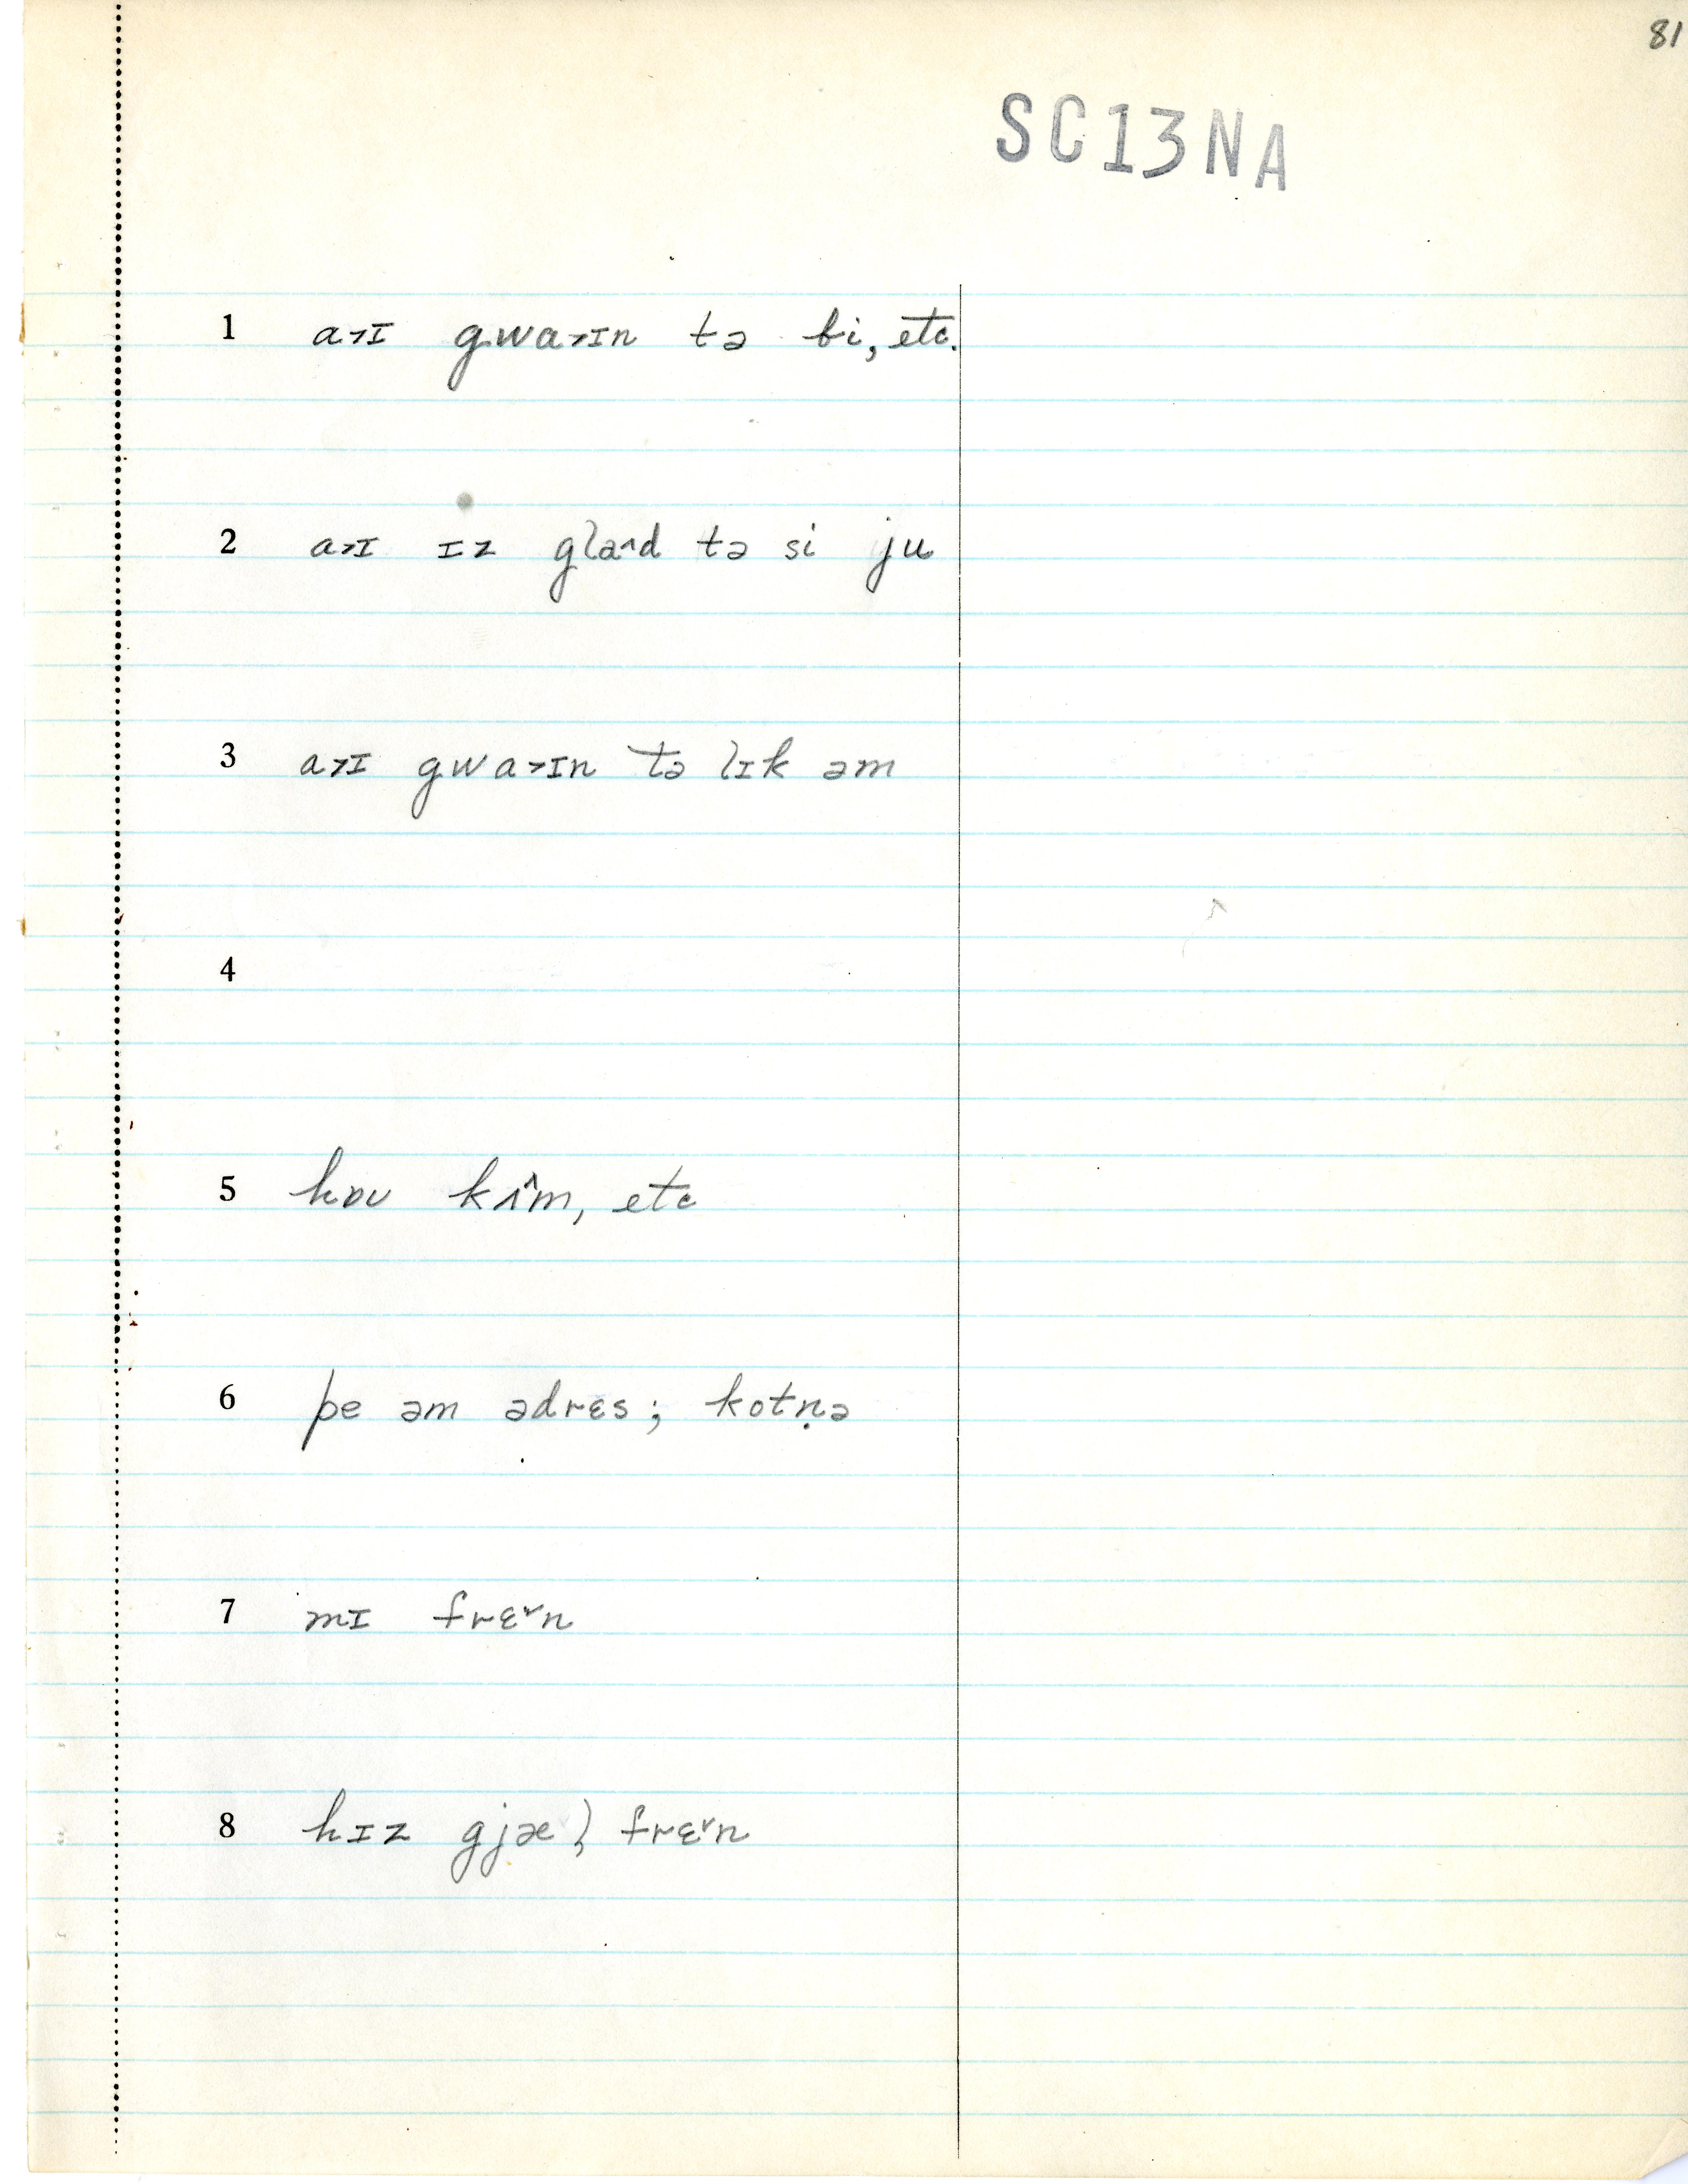 81
SC13NA
1 a˃ɪ gwa˃ɪn tə bi, etc.
2 a˃ɪ ɪz gla˄d tə si ju
3 a˃ɪ gwa˃ɪn tə lɪk əm
4
5 hɒu kʌ˄m, etc
6 pe əm ədrɛs; kotn̩ə
7 mɪ frɛ˅n
8 hɪz gjæl frɛ˅n